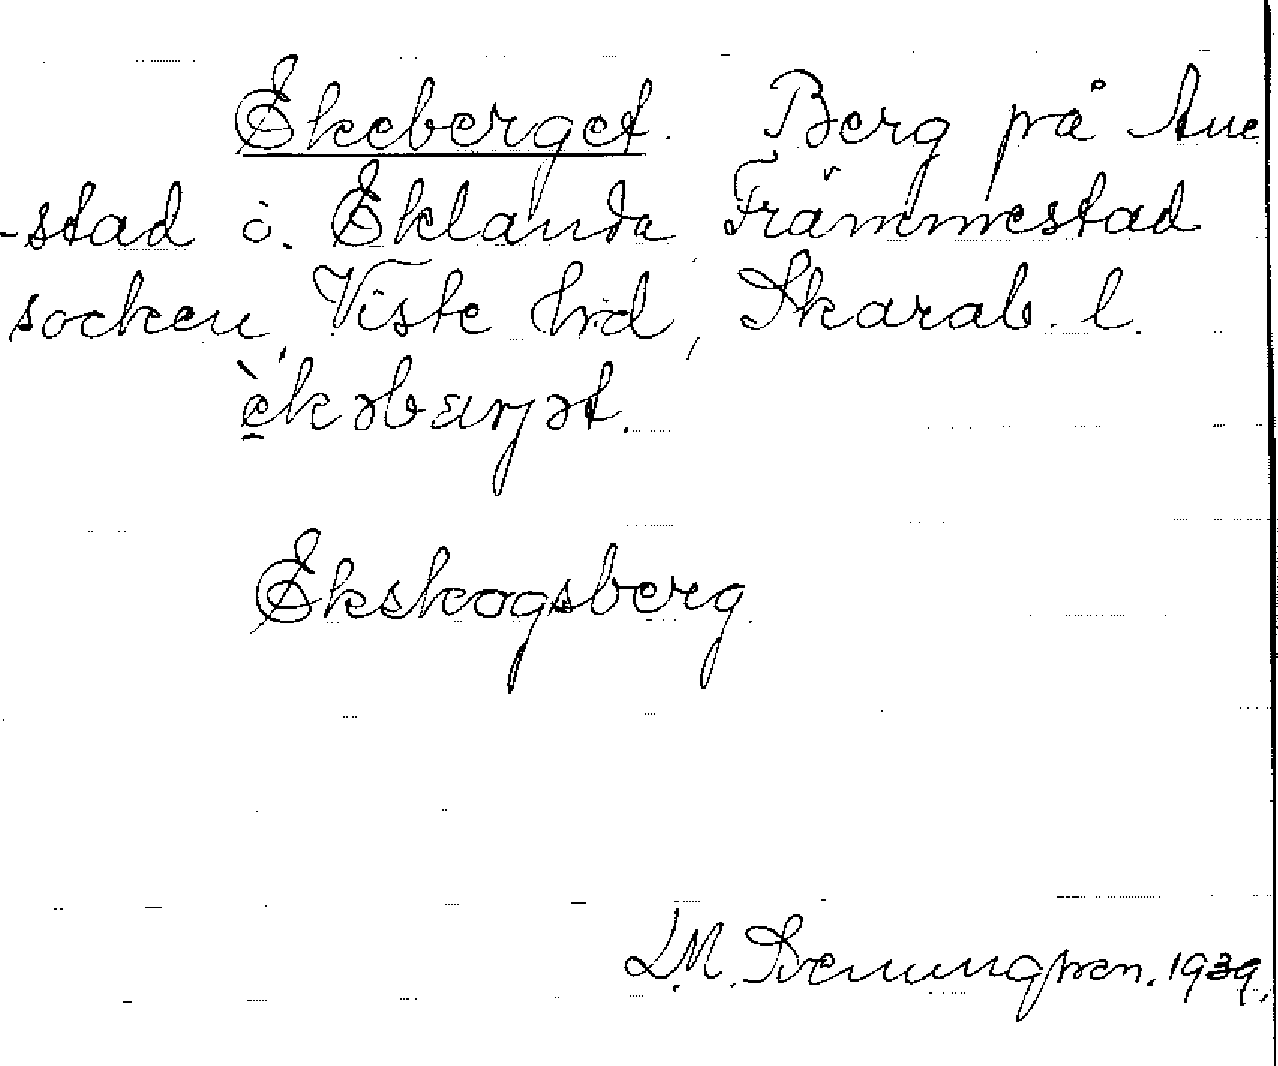 Ekeberget. Berg på Ane
-stad o. Eklanda, Främmestad
socken, Viste hrd, Skarab. l.
èkəbærjət.
Ekskogsberg
L.M. Svenungsson. 1939.